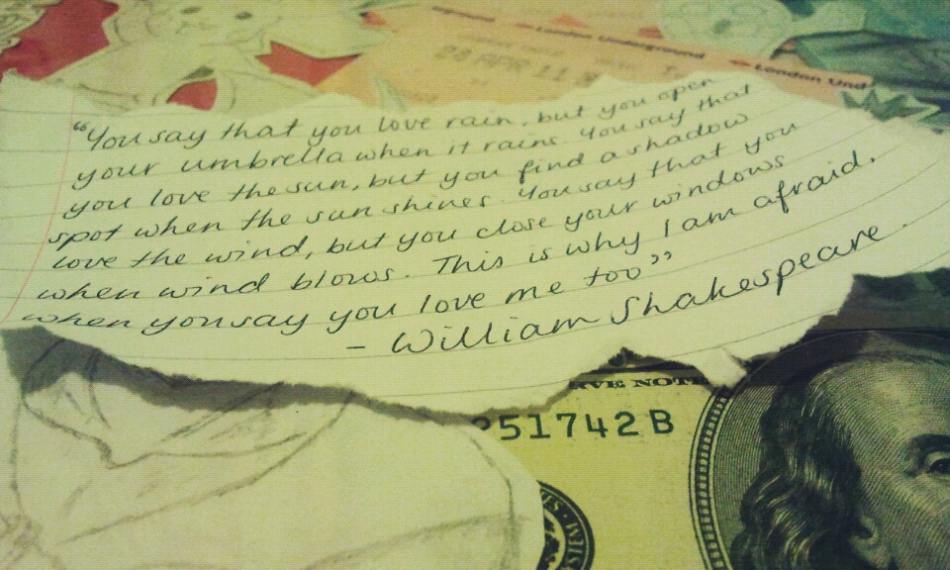 London Underground
London Und
28 APR 11
"You say that you love rain, but you open
your umbrella when it rains. You say that
you love the sun, but you find a shadow
spot when the sun shines. You say that you
love the wind, but you close your windows
when wind blows. This is why I am afraid,
when you say you love me too"
- William Shakespeare.
RVE NOTE
251742B